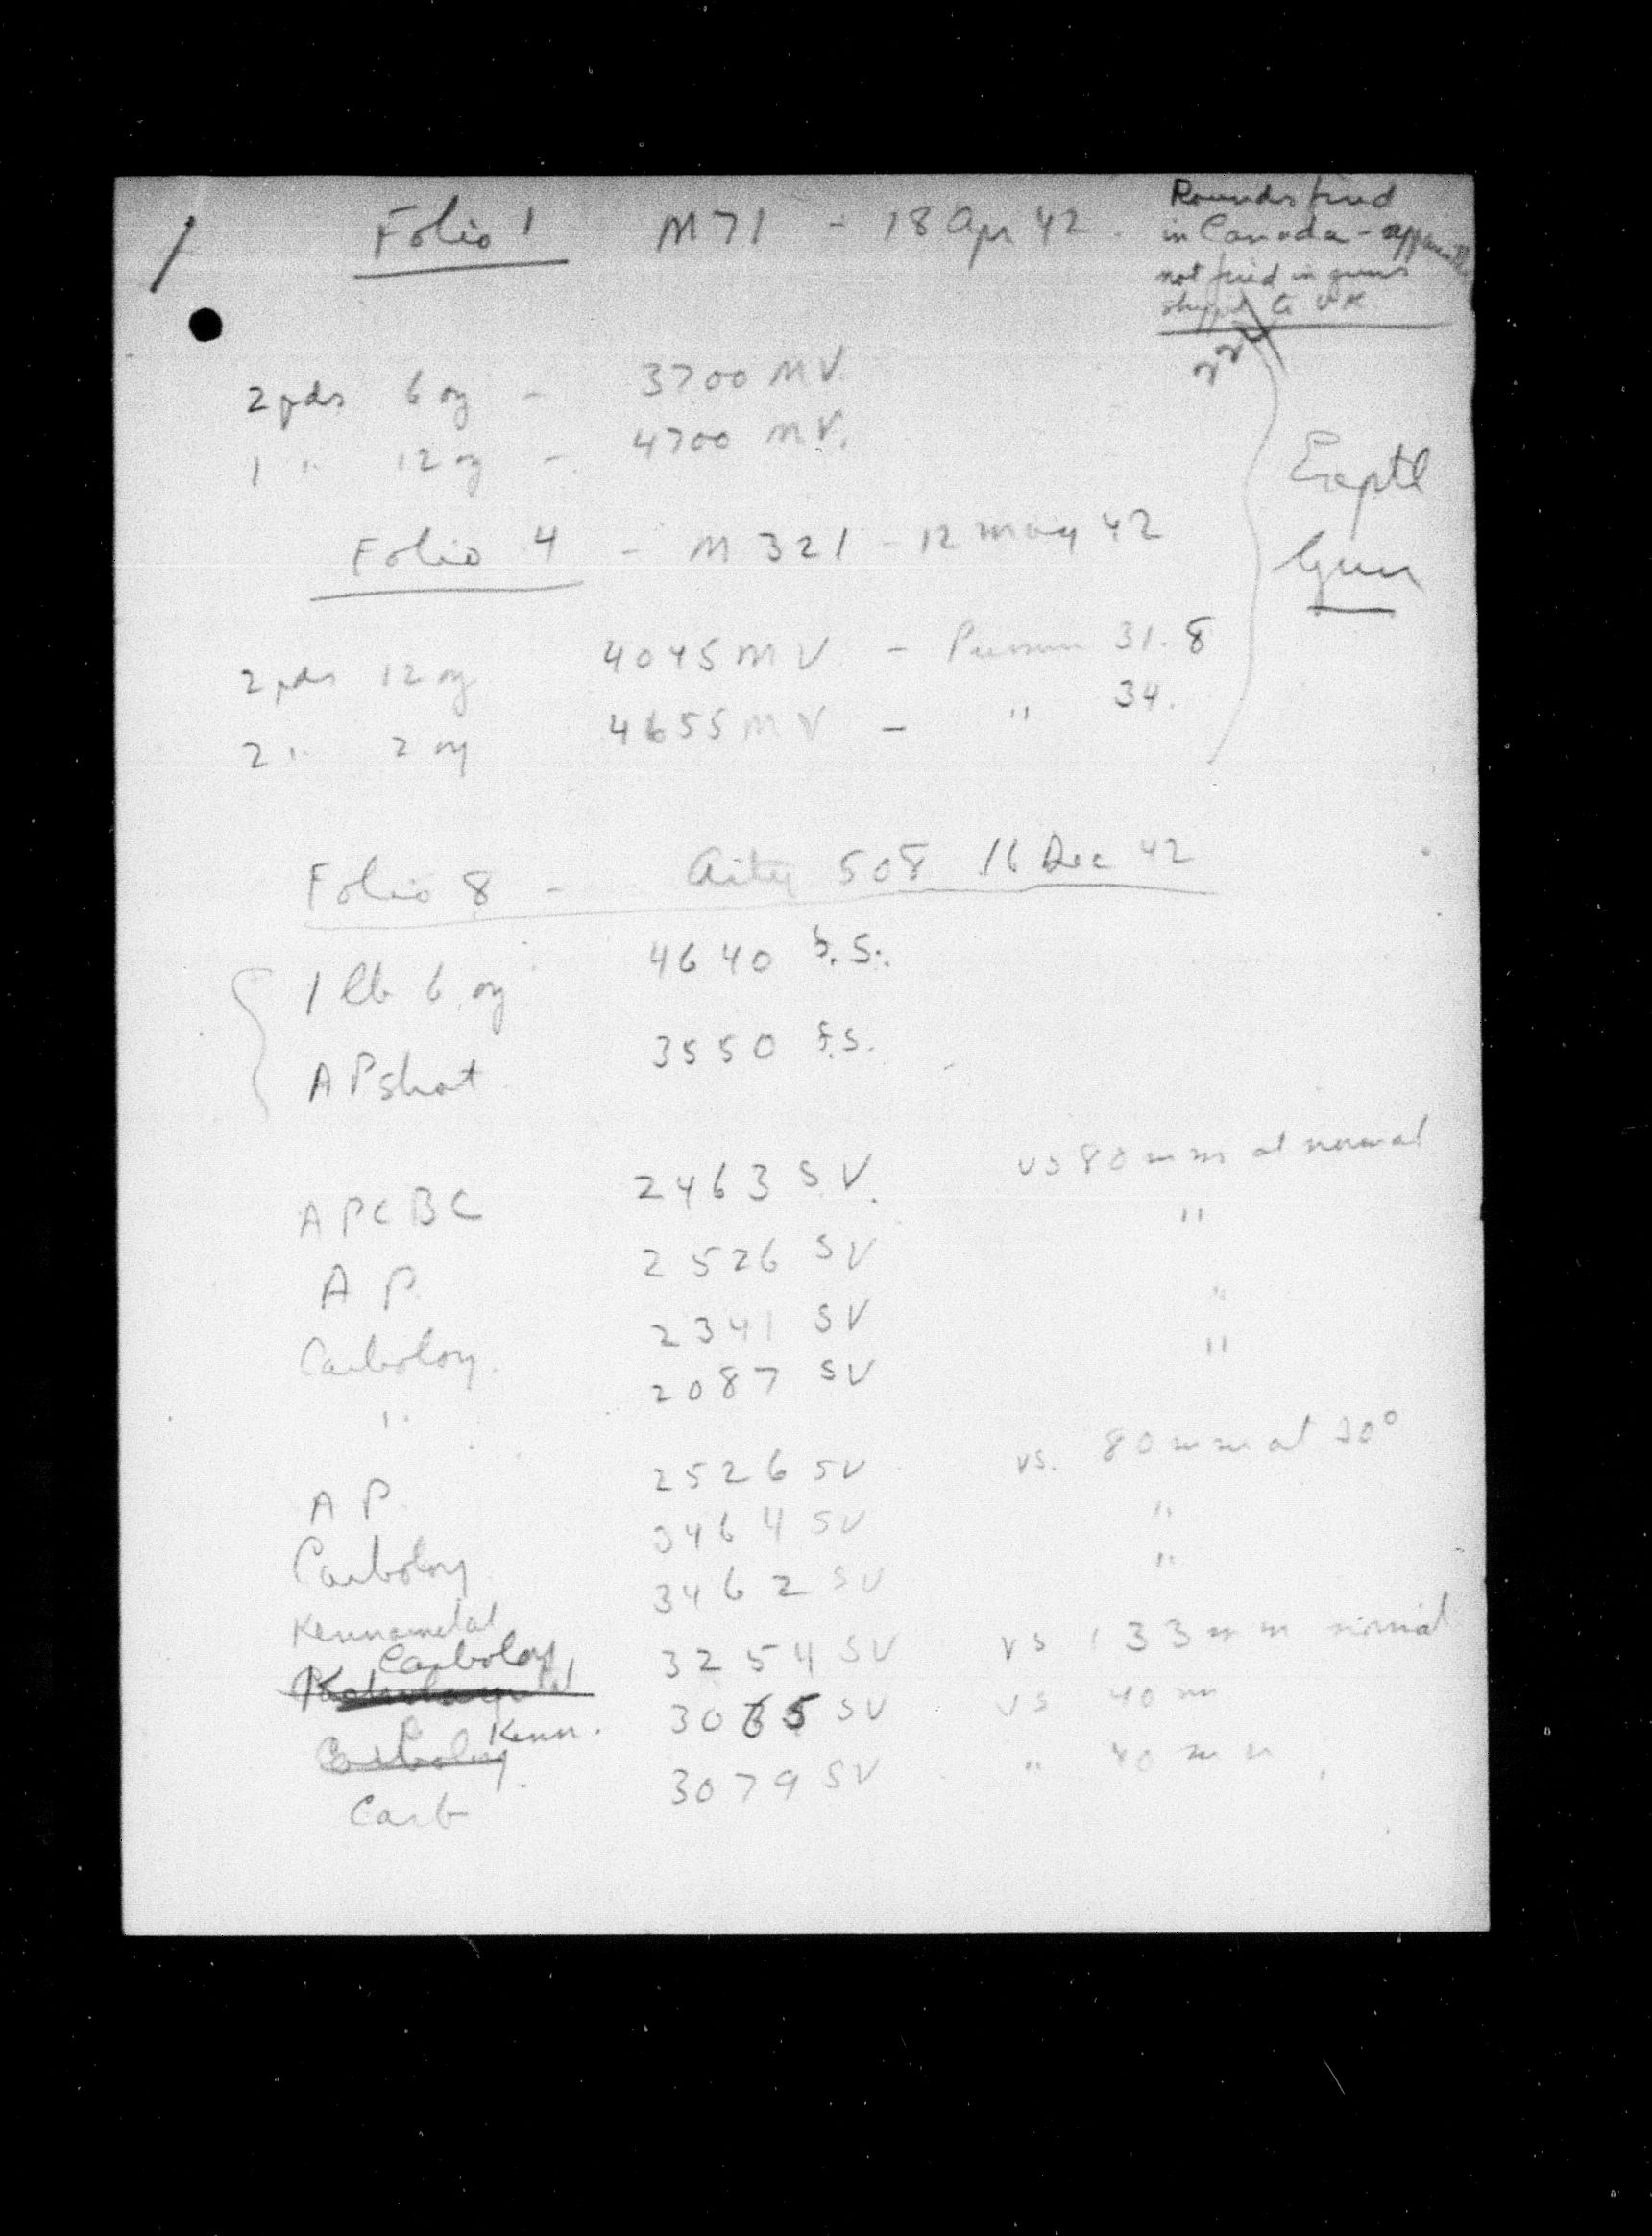 / Folio 1 M71 - 18 Apr 42.
Rounds fired
in Canada - apparently
not fired in guns
shipped to UK.
2 pds 6 oz - 3700 MV.
1 " 12 oz - 4700 MV.
Exptl
Gun
Folio 4 - M 321 - 12 May 42
2 pds 12 oz 4045 MV - 31.8
2 " 2 oz 4655 MV - " 34.
Folio 8 - 508 16 Dec 42
1 lb 6 oz 4640 f.s.
AP shot 3550 f.s.
APCBC 2463 SV. vs 80 mm at normal
AP. 2526 SV "
Carboloy. 2341 SV "
" 2087 SV "
AP. 2526 SV vs. 80 mm at 30°
Carboloy 3464 SV "
Kennametal 3462 SV "
Carboloy 3254 SV vs 133 mm normal
Kenn. 3065 SV vs 40 mm
Carboloy.
Carb 3079 SV " 40 mm